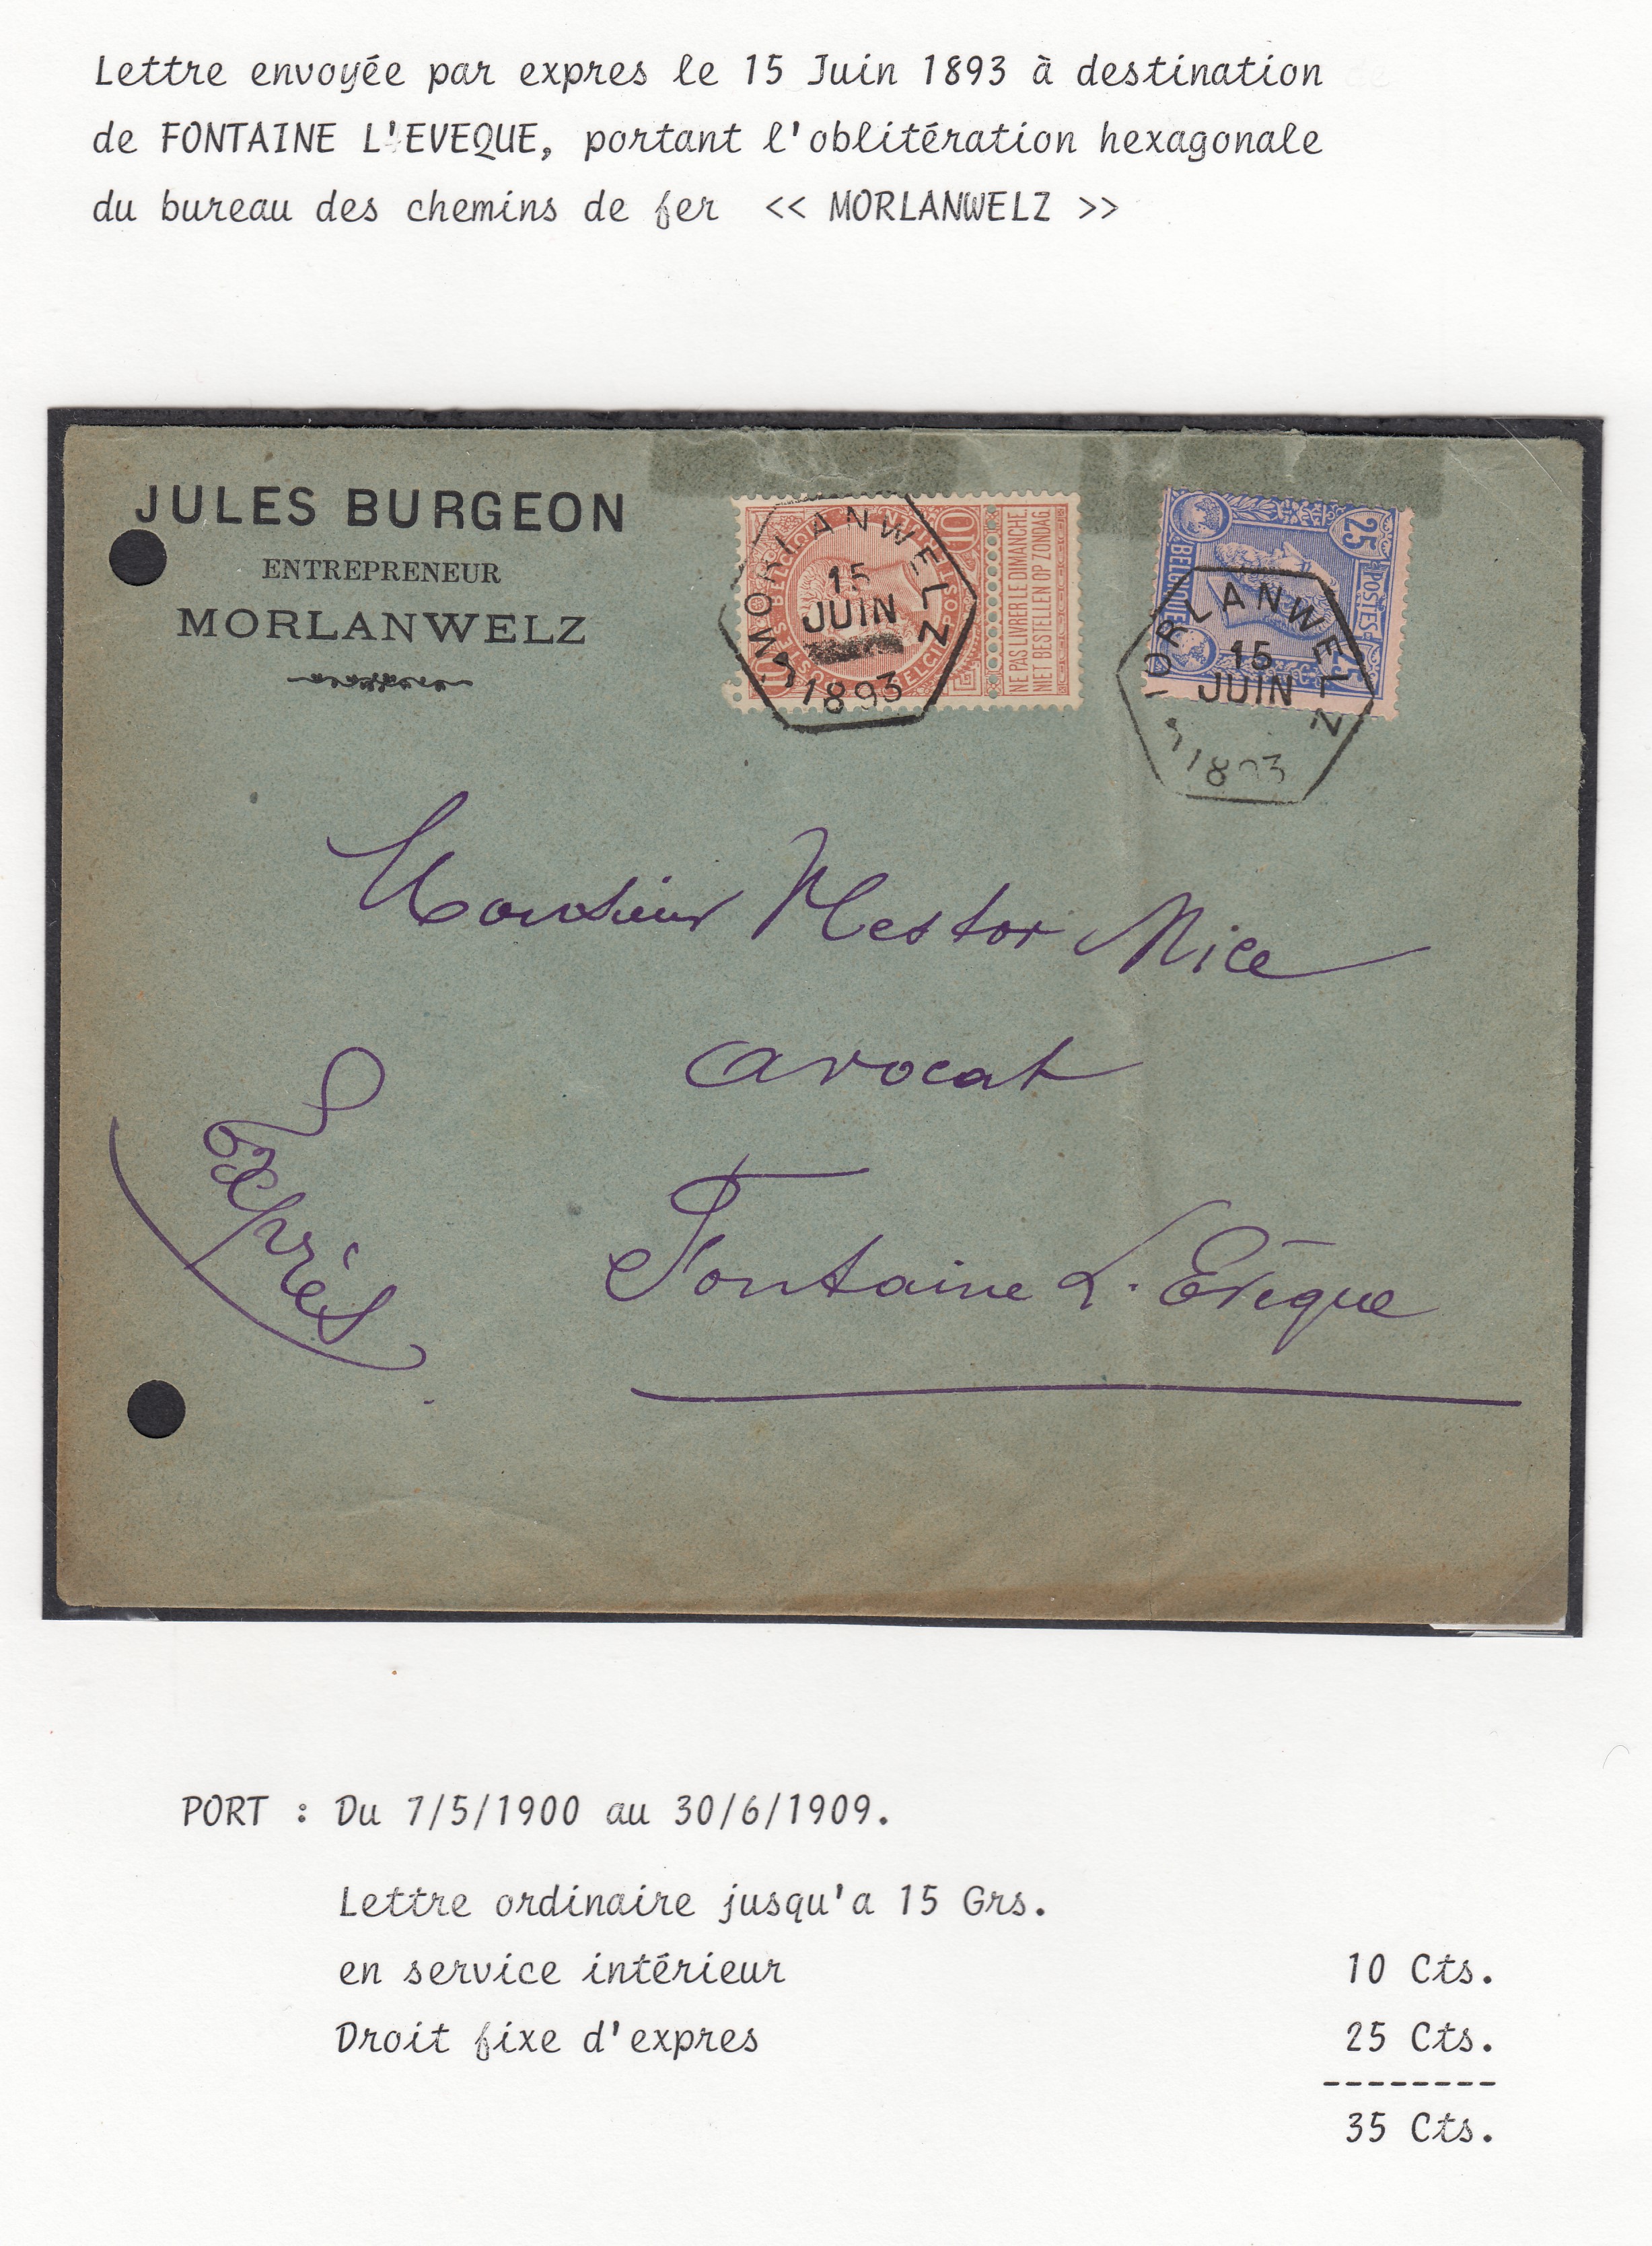 Lettre envoyée par expres le 15 Juin 1893 à destination
de FONTAINE L'EVEQUE, portant l'oblitération hexagonale
du bureau des chemins de fer << MORLANWELZ >>
JULES BURGEON
ENTREPRENEUR
MORLANWELZ
MORLANWELZ
15
JUIN
1893
10
NE PAS LIVRER LE DIMANCHE
NIET BESTELLEN OP ZONDAG
25
POSTES
BELGIQUE
25
MORLANWELZ
15
JUIN
1893
Monsieur Nestor Mice
avocat
Fontaine L. Evêque
Exprès
PORT : Du 7/5/1900 au 30/6/1909.
Lettre ordinaire jusqu'a 15 Grs.
en service intérieur 10 Cts.
Droit fixe d'expres 25 Cts.
--------
35 Cts.